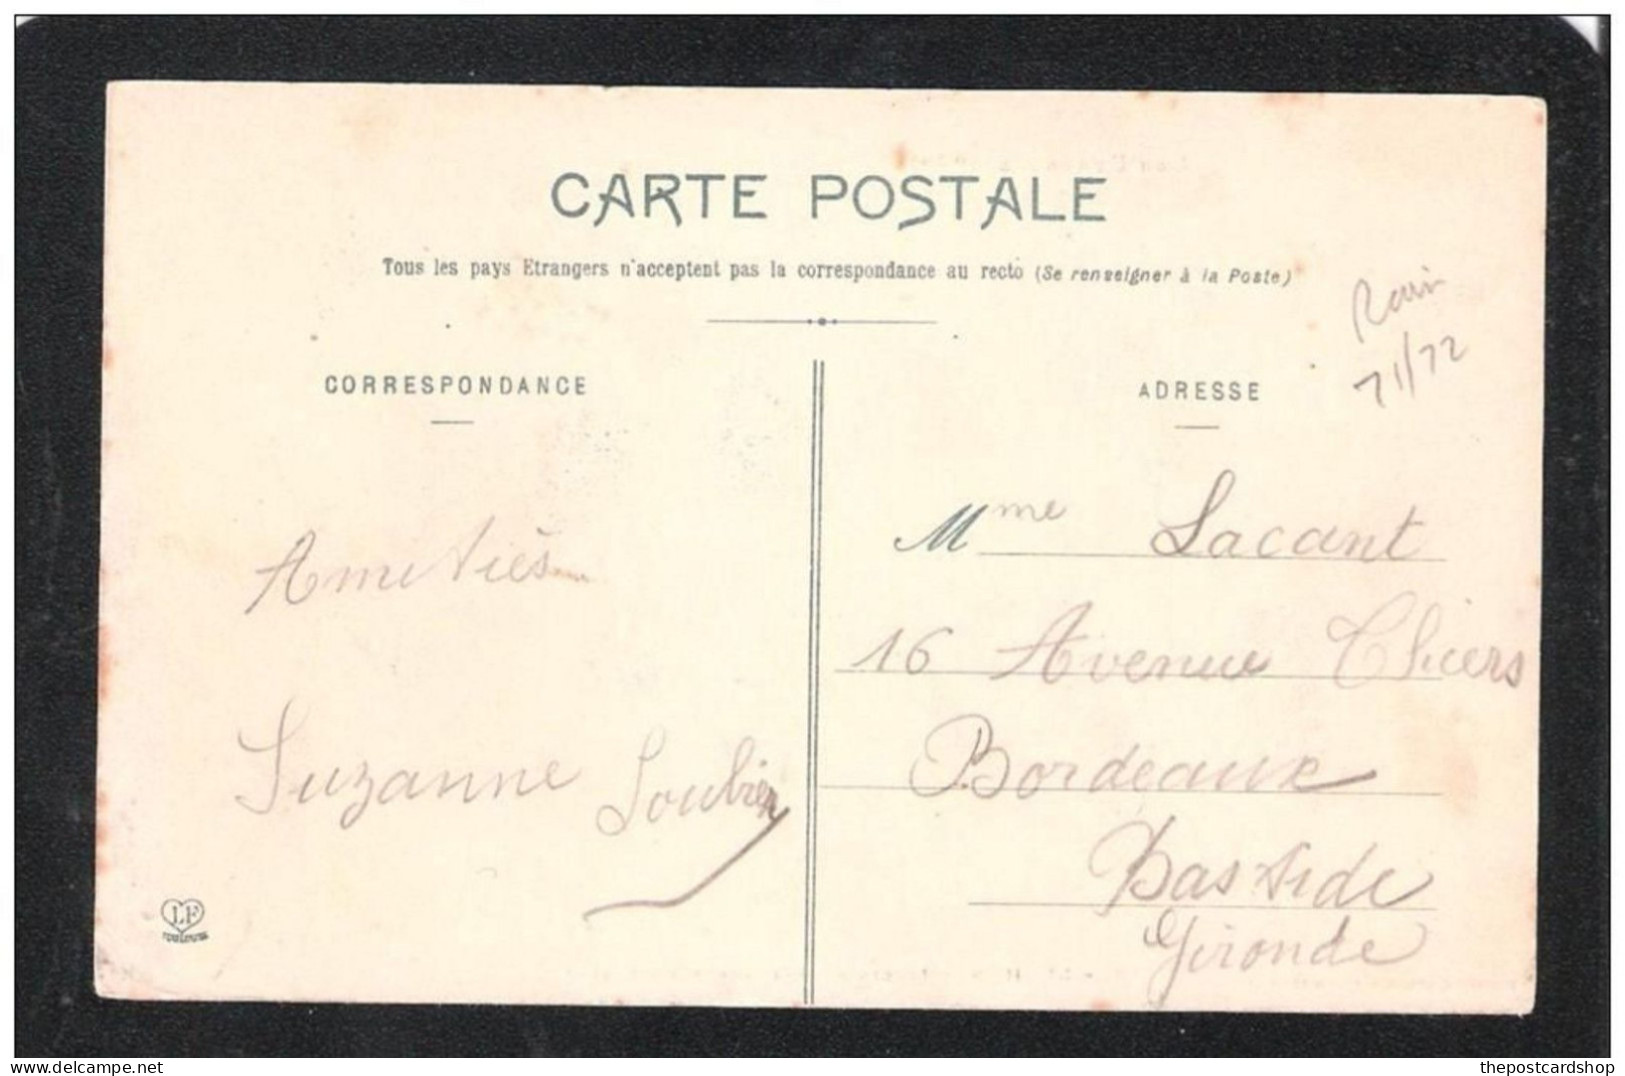 CARTE POSTALE
Tous les pays Etrangers n'acceptent pas la correspondance au recto (Se renseigner à la Poste)
71/72
CORRESPONDANCE
ADRESSE
Amitiés
Suzanne Soubien
Mme Lacant
16 Avenue Thiers
Bordeaux
Bastide
Gironde
LF
TOULOUSE
delcampe.net
thepostcardshop